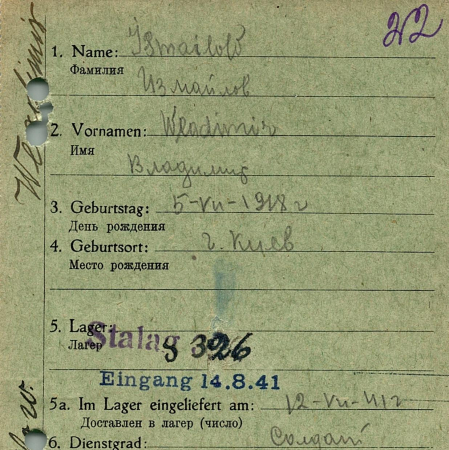 22
1. Name: Ismailow
Фамилия
Измайлов
2. Vornamen: Wladimir
Имя
Владимир
3. Geburtstag: 5-VII-1918 г
День рождения
4. Geburtsort: г. Киев
Место рождения
5. Lager:
Лагер
Stalag 326
Eingang 14.8.41
5a. Im Lager eingeliefert am: 12-VII-41 г
Доставлен в лагер (число)
6. Dienstgrad: Солдат
Wladimir